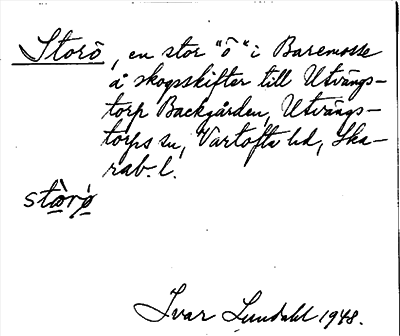 Storö, en stor "ö" i Baremosse
å skogsskifter till Utvängs-
torp Backgården, Utvängs-
torps sn, Vartofta hd, Ska-
rab. l.
stòrö̀
Ivar Lundahl 1948.